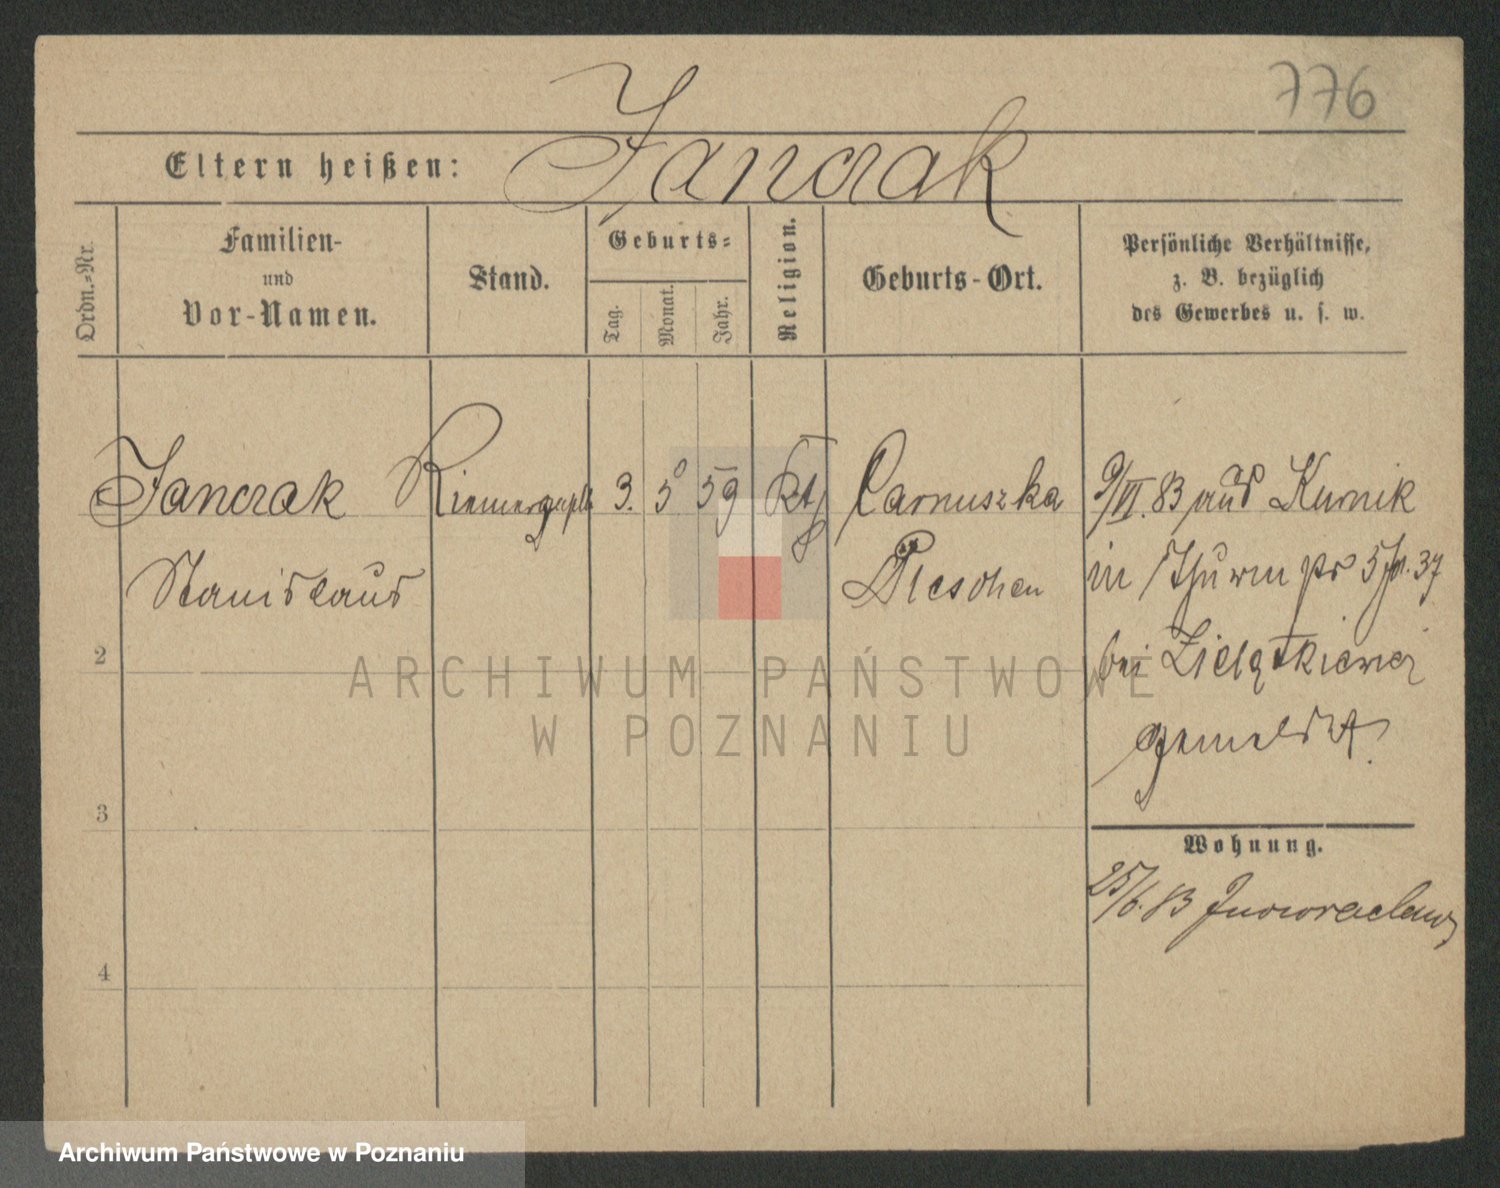 776
Eltern heißen: Janczak
Ordn.-Nr.
Familien-
und
Vor-Namen.
Stand.
Geburts-
Tag.
Monat.
Jahr.
Religion.
Geburts-Ort.
Persönliche Verhältnisse,
z. B. bezüglich
des Gewerbes u. s. w.
Janczak
Stanislaus
3. 5 59
Kth
Carnuszka
Pleschen
9/VI. 83 aus Kurnik
in pr 37
bei
gemeldet.
2
3
4
Wohnung.
25/6. 83 Inowraclaw
ARCHIWUM PAŃSTWOWE
W POZNANIU
Archiwum Państwowe w Poznaniu